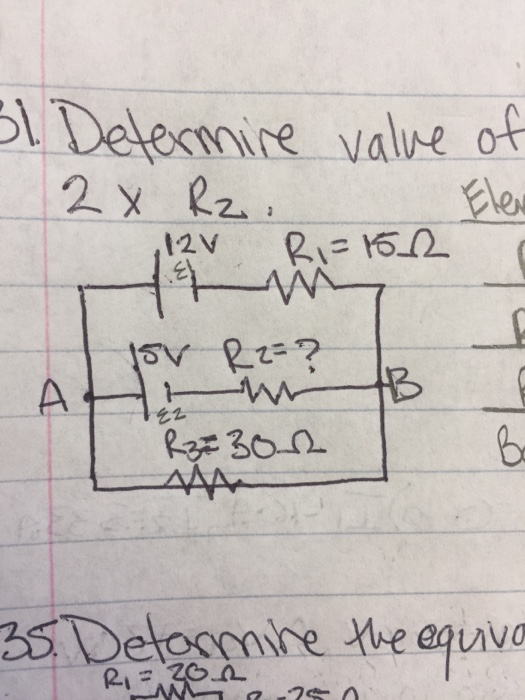 31. Determine value of
2 x R2.
12V
ε1
R1 = 15Ω
15V
R2=?
A
B
ε2
R3=30Ω
35. Determine the equiva
R1 = 20Ω